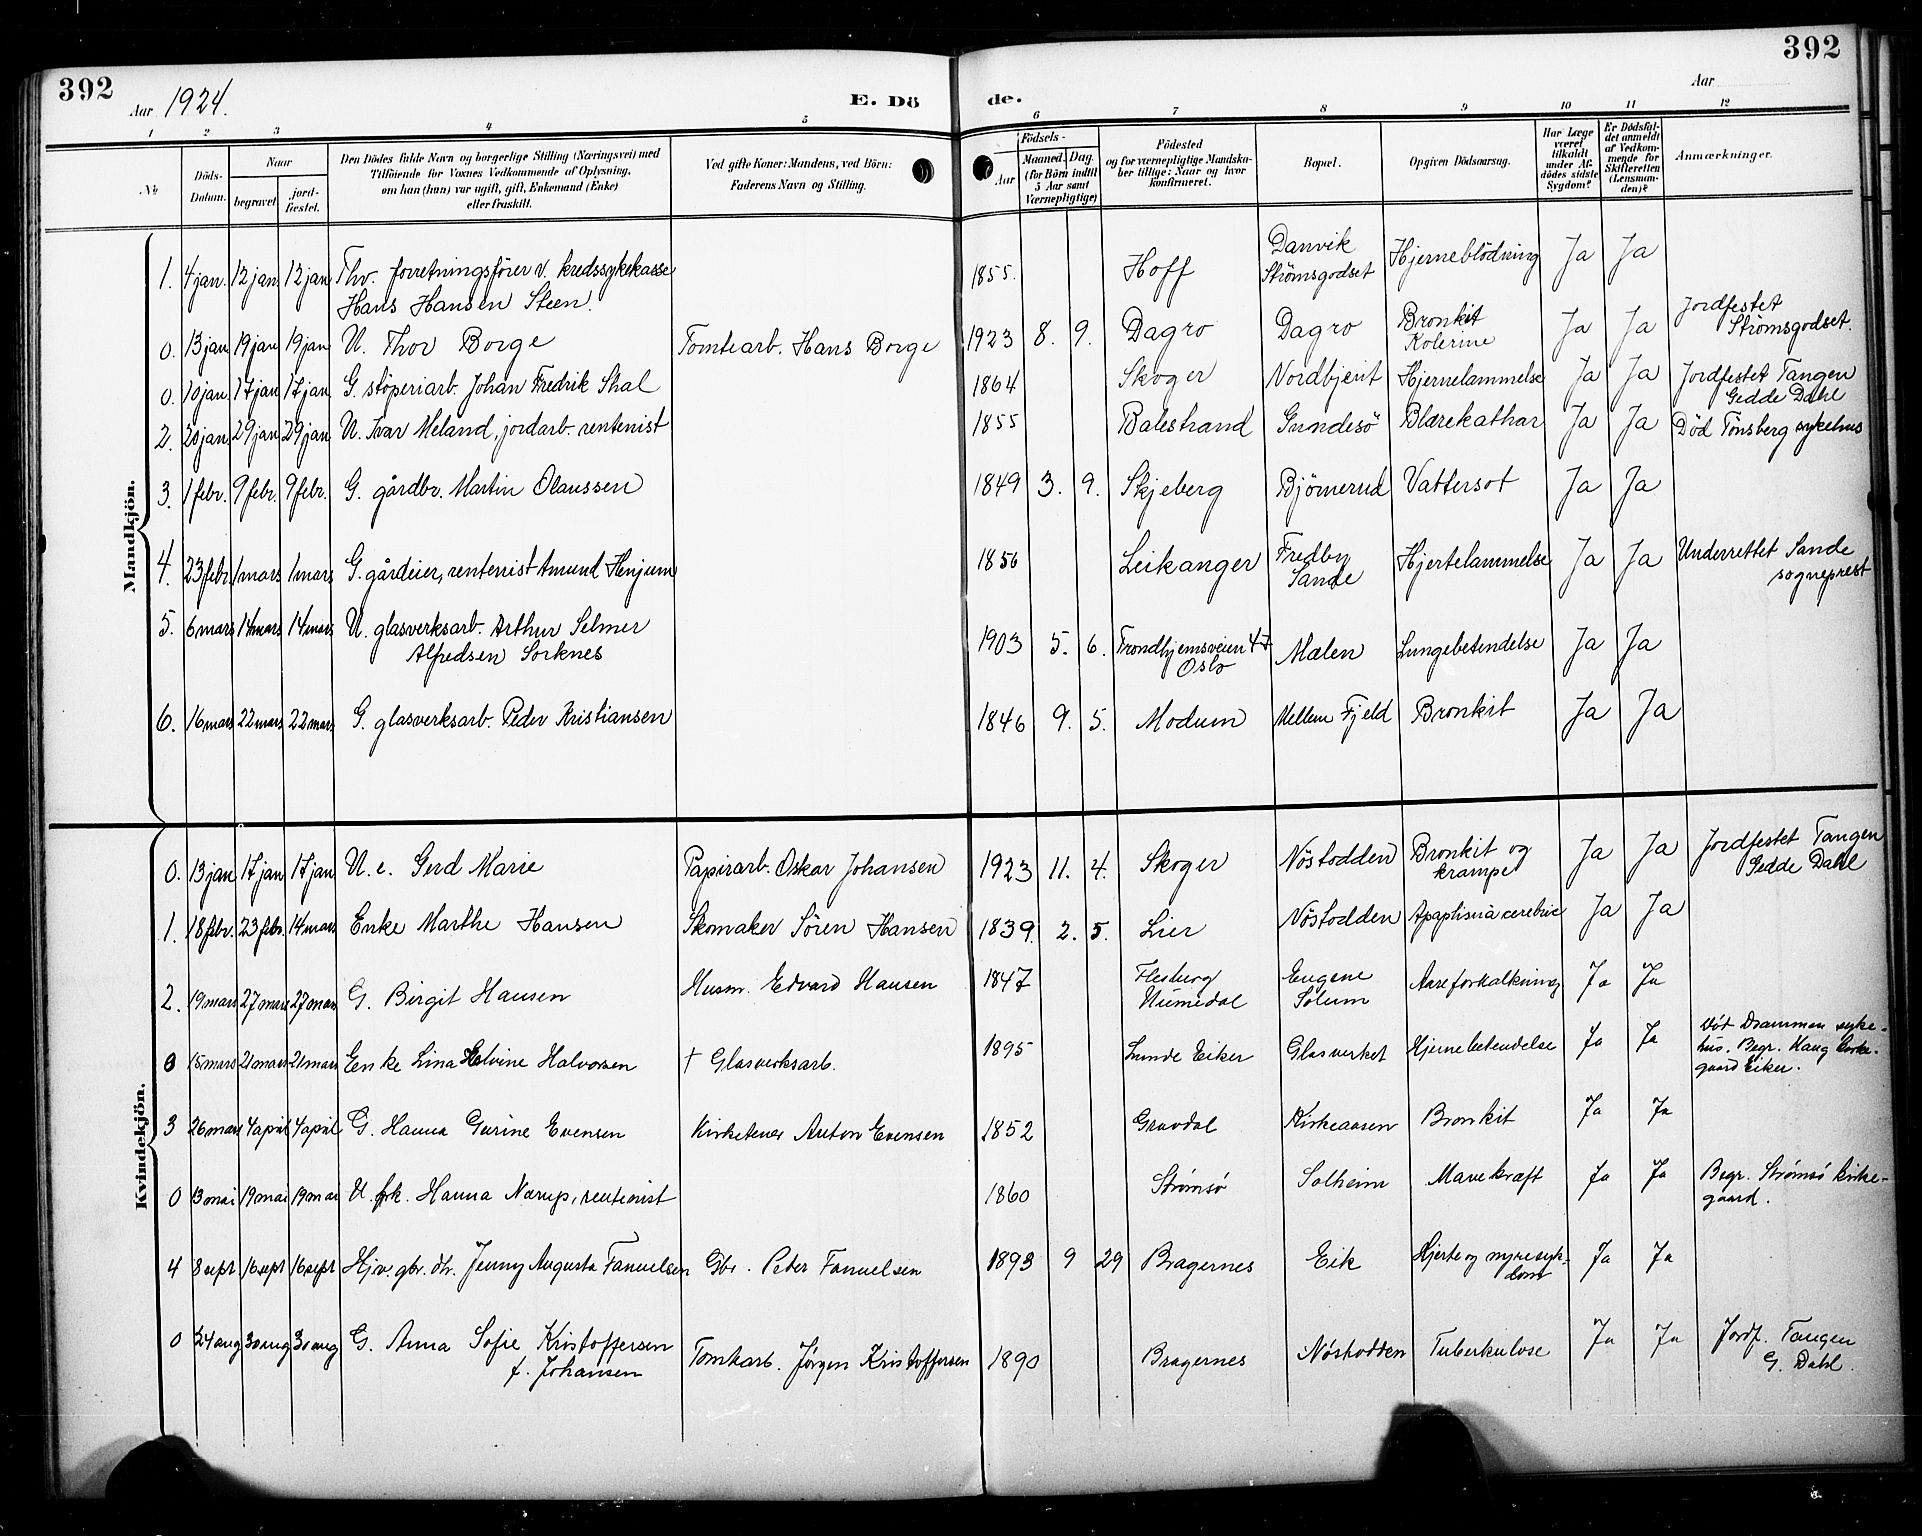 392
Aar 1924.
E. Dö de.
Aar
392
1 2 3 4 5 6 7 8 9 10 11 12
No
Döds-Datum.
Naar
begravet.
jord-fæstet.
Den Dödes fulde Navn og borgerlige Stilling (Næringsvei) med
Tilföiende for Voxnes Vedkommende af Oplysning,
om han (hun) var ugift, gift, Enkemand (Enke)
eller fraskilt.
Ved gifte Koner: Mandens, ved Börn:
Faderens Navn og Stilling.
Födsels-
Aar
Maaned. Dag.
(for Börn indtil
5 Aar samt
Værnepligtige)
Födested
og for værnepligtige Mandska-
ber tillige: Naar og hvor
konfirmeret.
Bopæl.
Opgiven Dödsaarsag.
Har Læge
været
tilkaldt
under Af-
dödes sidste
Sygdom?
Er Dödsfal-
det anmeldt
af Vedkom-
mende for
Skifteretten
(Lensman-
den)?
Anmærkninger.
Mandkjön.
1. 4 jan. 12 jan 12 jan Thv. forretningsförer v. kredssykekasse
Hans Hansen Steen. 1855. Hoff Danvik
Strömsgodset Hjerneblödning Ja Ja
0. 13 jan 19 jan 19 jan U. Thor Borge Tomtearb. Hans Borge 1923 8. 9. Dagro Dagro Bronkit
Kolerine Ja Ja Jordfestet
Strömsgodset.
0. 10 jan 17 jan 17 jan G. stöperiarb. Johan Fredrik Skal 1864 Skoger Nordbjerit Hjernelammelse Ja Ja Jordfestet Tangen
Gedde Dahl
2. 20 jan 29 jan 29 jan U. Ivar Meland, jordarb. rentenist 1855 Balestrand Gundesö Blærekathar Ja Ja Död Tönsberg sykehus
3. 1 febr. 9 febr. 9 febr. G. gårdbr. Martin Olaussen 1849 3. 9. Skjeberg Björnerud Vattersot Ja Ja
4. 23 febr 1 mars 1 mars G. gårdeier, rentenist Amund Henjum 1856 Leikanger Fredby
Sande Hjertelammelse Ja Ja Underrettet Sande
sogneprest
5. 6 mars 14 mars 14 mars U. glasverksarb. Arthur Selmer
Alfredsen Sorknes 1903 5. 6. Trondhjemsveien 47
Oslo Mælen Lungebetendelse Ja Ja
6. 16 mars 22 mars 22 mars G. glasverksarb. Peder Kristiansen 1846 9. 5. Modum Mellem Fjeld Bronkit Ja Ja
Kvindekjön.
0. 13 jan 17 jan 17 jan U. e. Gerd Marie Papirarb. Oskar Johansen 1923 11. 4. Skoger Nöstodden Bronkit og
krampe Ja Ja Jordfestet Tangen
Gedde Dahl
1. 18 febr. 23 febr. 14 mars Enke Marthe Hansen Skomaker Sören Hansen 1839. 2. 5. Lier Nöstodden Ja Ja
2. 19 mars 27 mars 27 mars G. Birgit Hansen Husm. Edvard Hansen 1847 Flesberg
Numedal Eugene
Solum Aareforkalkning Ja Ja
0 15 mars 21 mars 21 mars Enke Lina Halvorsen † Glasverksarb. 1895 Lunde Eiker Glasverket Hjernebetendelse Ja Ja Död Drammen syke-
hus. Begr. Haug kirke-
gaard Eiker.
3 26 mars 4 april 4 april G. Hanna Gurine Evensen Kirketener Anton Evensen 1852 Gravdal Kirkeaasen Bronkit Ja Ja
0 13 mai 19 mai 19 mai U. frk. Hanna Nærup, rentenist 1860 Strømsø Solheim Mavekræft Ja Ja Begr. Strømsö kirke-
gaard.
4 8 sept 16 sept 16 sept Hjv. gbr. Jenny Augusta Fanuelsen Gbr. Peter Fanuelsen 1893 9 29 Bragernes Eik Hjerte og nyresyk-
dom Ja Ja
0 24 aug 30 aug 30 aug G. Anna Sofie Kristoffersen
f. Johansen Tomtearb. Jørgen Kristoffersen 1890 Bragernes Nöstodden Tuberkulose Ja Ja Jordf. Tangen
G. Dahl.